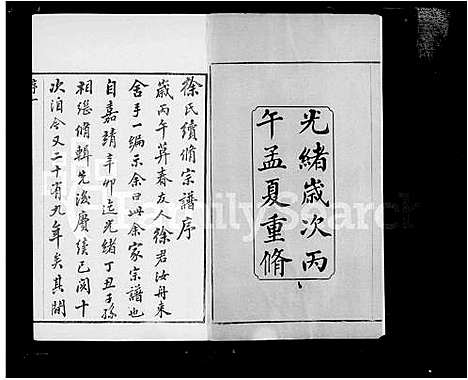 光緒歲次丙
午孟夏重脩
徐氏續脩宗譜序
歲丙午莫春友人徐君汝舟來
舍手一編示余曰此余家宗譜也
自嘉靖辛卯迄光緒丁丑子孫
相繼脩輯先後賡續已閱十
次洎今又二十有九年矣其間
序一
FamilySearch